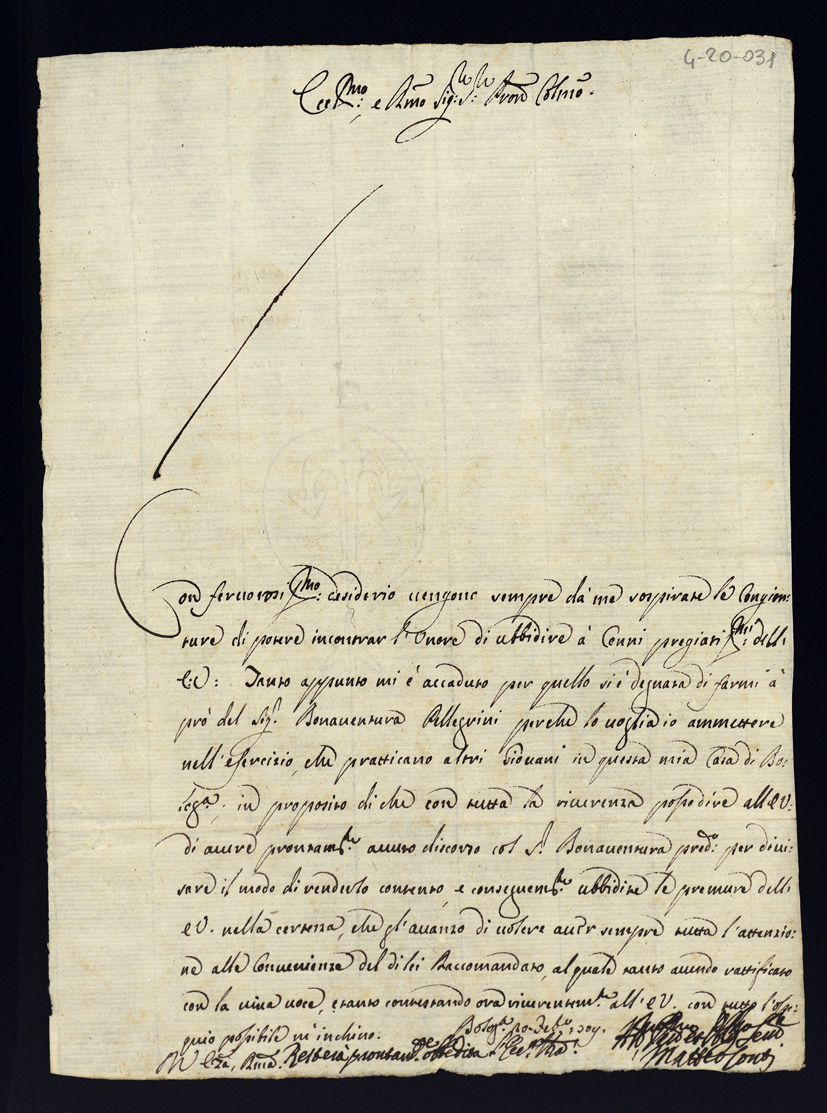 4-20-031
Ecc.mo: e R.mo Sig:r S:r Pron Colmo.
Con feruorosi.mo: desiderio uengono sempre dà me sospirate le Congion:
ture di potere incontrar l'Onore di ubbidire à Cenni pregiati.mi: dell:
E:V: Tanto appunto mi è accaduto per quello si è degnata di farmi à
prò del Sig.r Bonauentura Pellegrini perche lo uoglia io ammettere
nell'esercizio, che pratticano altri Giouani in questa mia Casa di Bo:
log.a; in proposito di che con tutta la riuerenza posso dire all'EV:
di auere prontam.te auuto discorso col S.r Bonauentura pred.o per diui:
sare il modo di renderlo contento, e conseguentem.te ubbidite le premure dell:
EV. nella certezza, che gl'auanzo di uolere auer sempre tutta l'attenzio:
ne alle Conuenienze del di lei Raccomandato, al quale tanto auendo rattificato
con la uiua uoce, e tanto contestando ora riuerentem.te all'EV. con tutto l'osse:
quio possibile m'inchino. Bolog.a
Resterà prontam.te obbedita
Matteo Conti